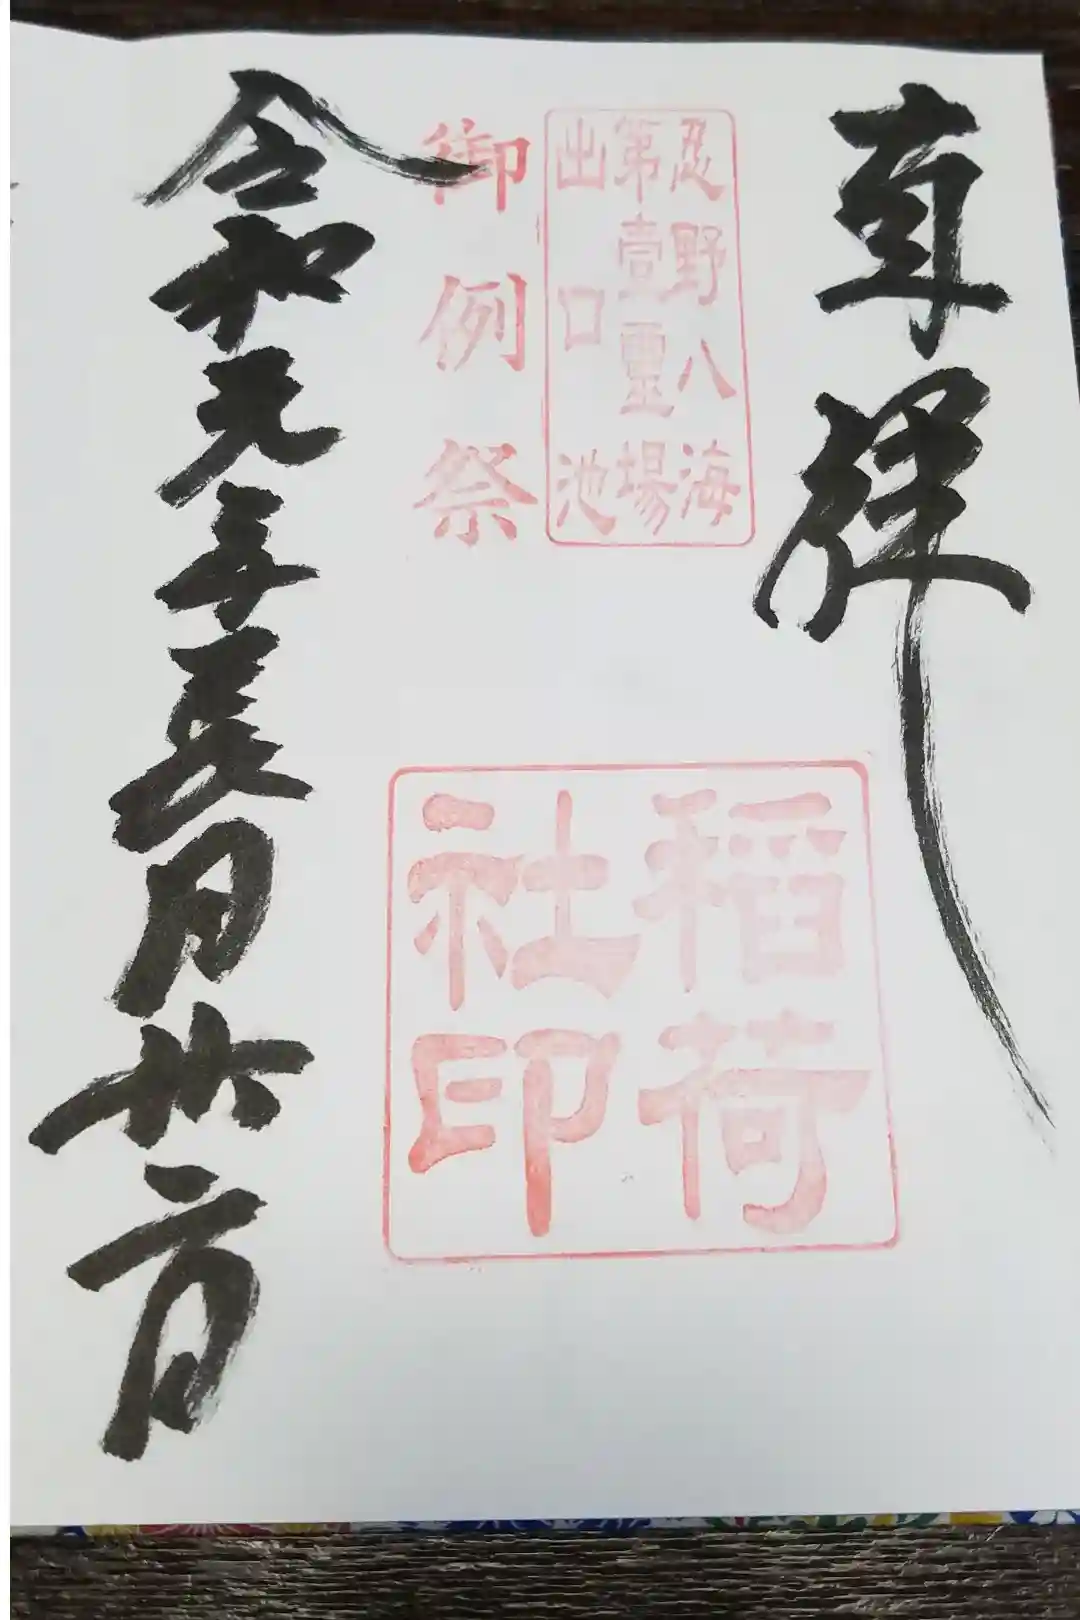 奉拝
忍野八海
第壹霊場
出口池
御例祭
稲荷
社印
令和元年長月廿二日